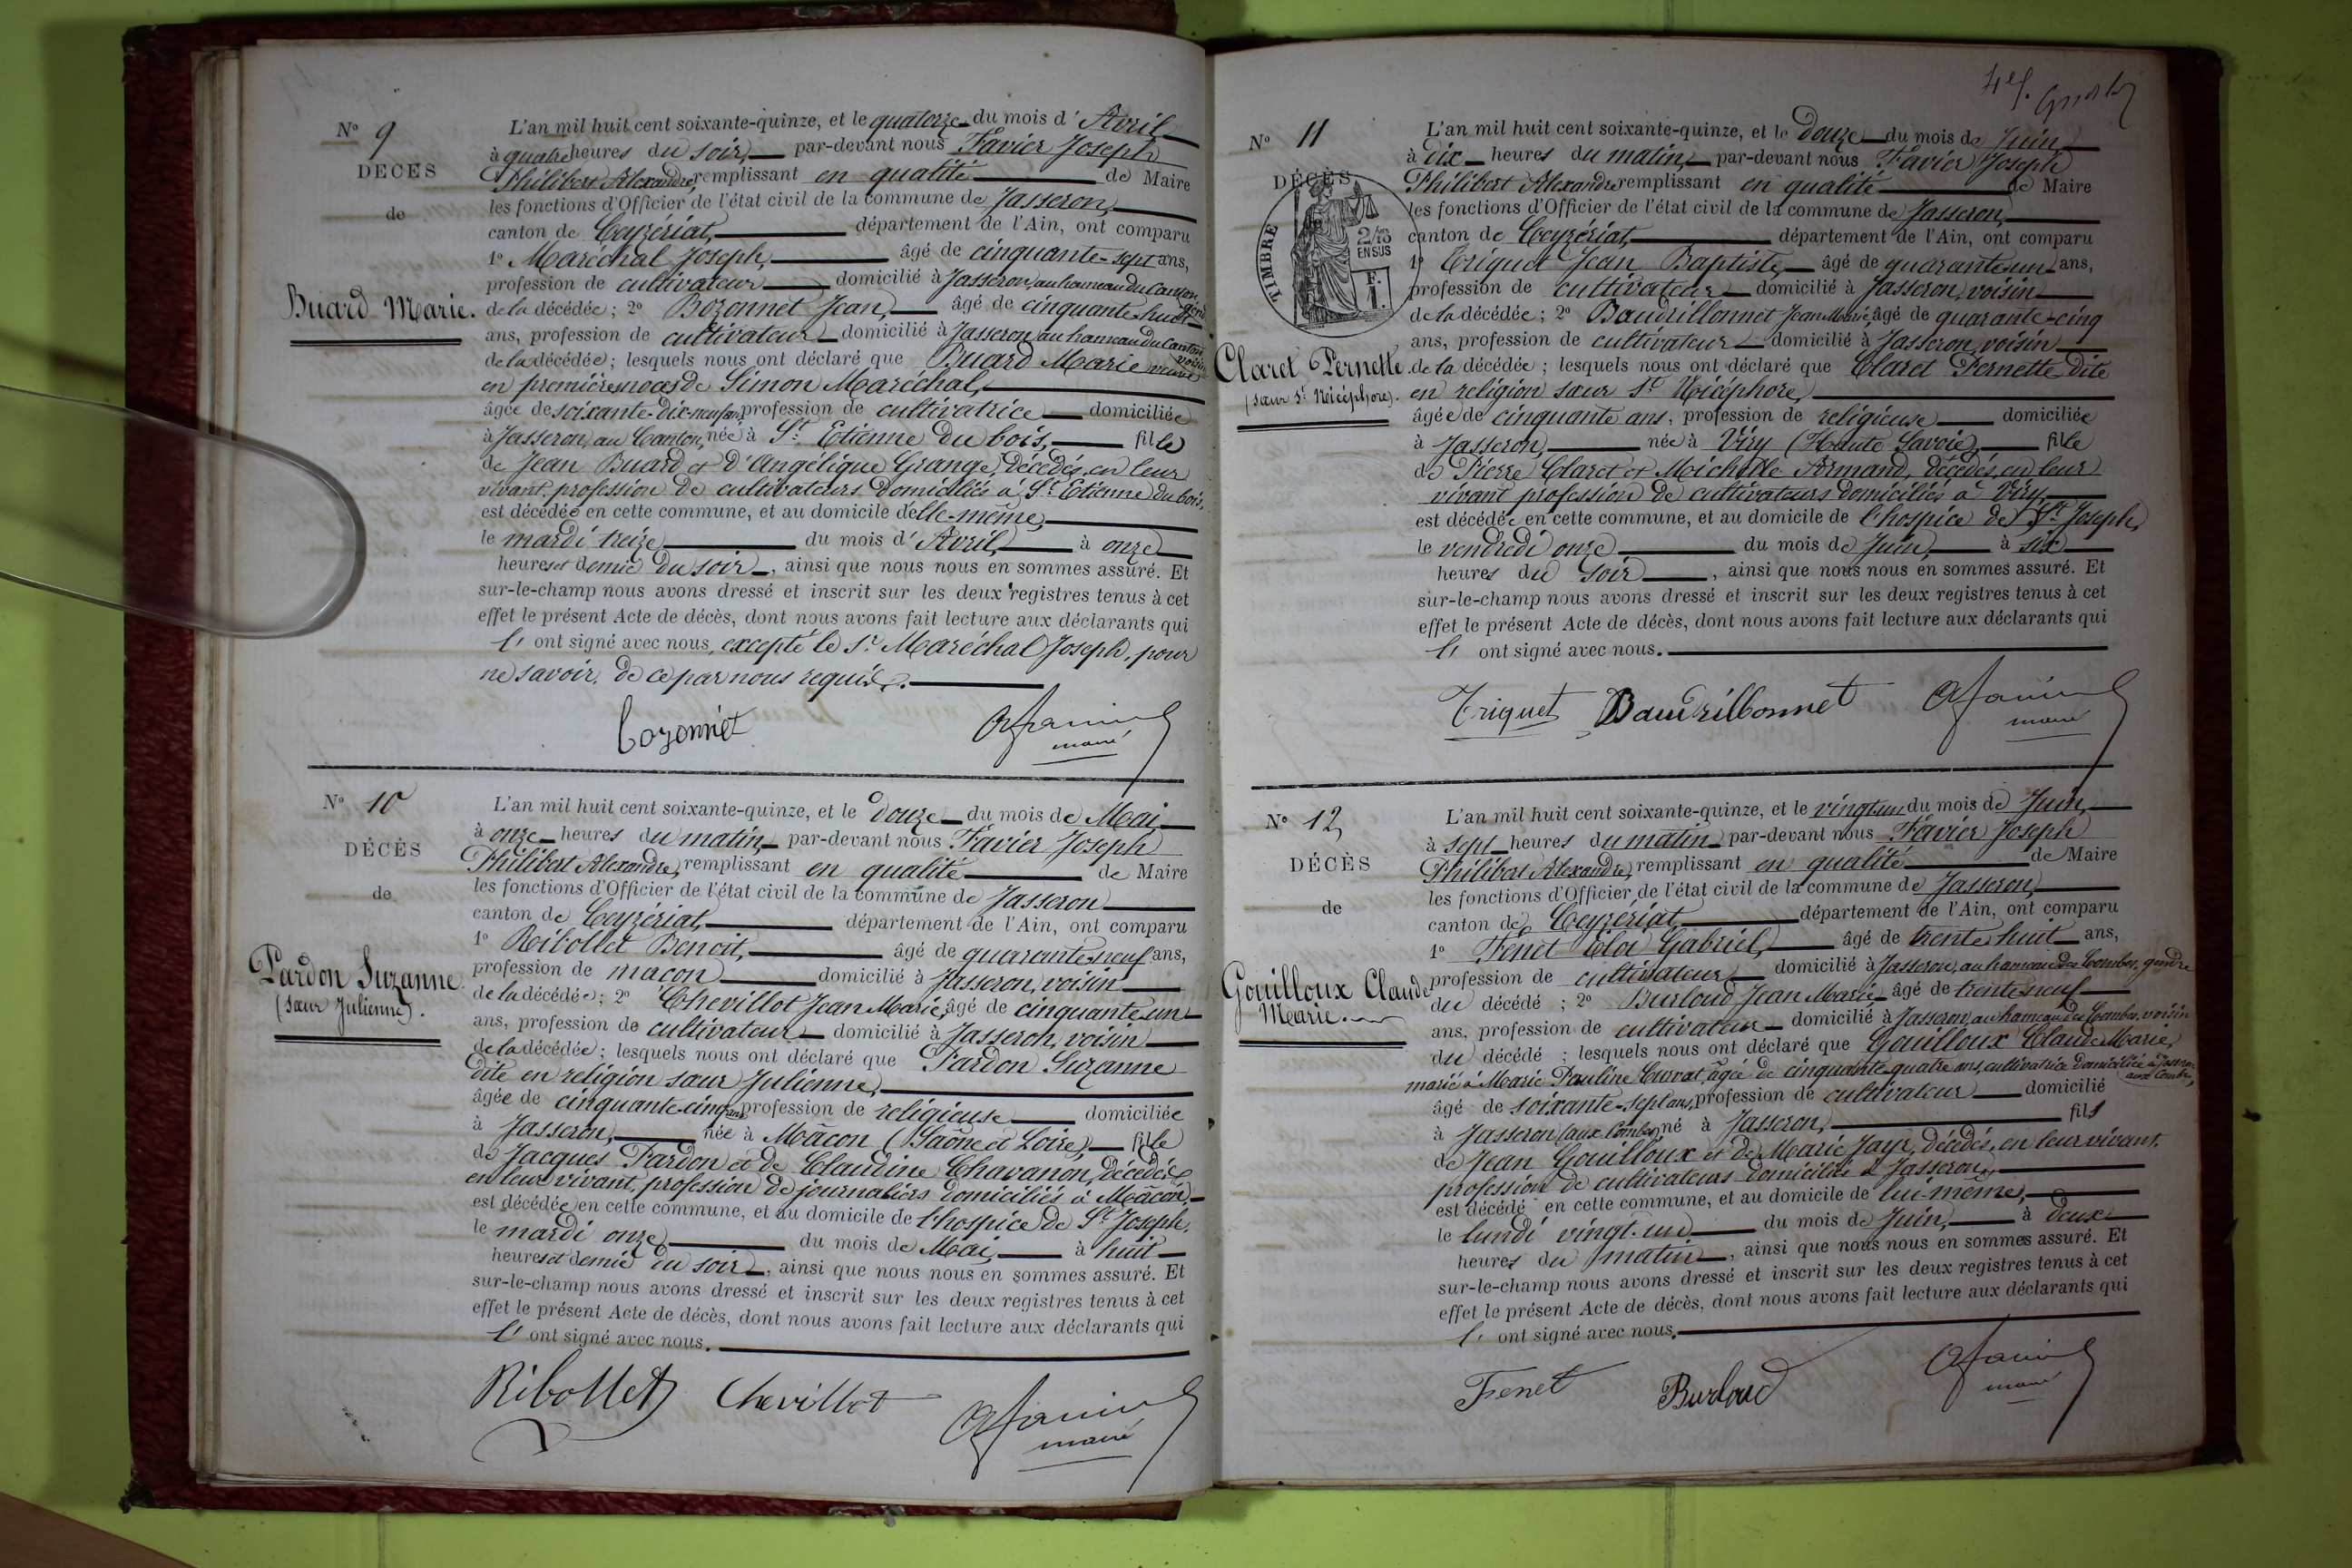 N° 9
DÉCÈS
de
Buard Marie.
L'an mil huit cent soixante-quinze, et le quatorze du mois d'Avril
à quatre heures du soir, par-devant nous Favier Joseph
Philibert Alexandre, remplissant en qualité de Maire
les fonctions d'Officier de l'état civil de la commune de Jasseron,
canton de Ceyzériat, département de l'Ain, ont comparu
1° Maréchal Joseph, âgé de cinquante-sept ans,
profession de cultivateur domicilié à Jasseron, au hameau du Canton,
de la décédée; 2° Bozonnet Jean, âgé de cinquante-huit
ans, profession de cultivateur domicilié à Jasseron, au hameau du Canton voisin
de la décédée; lesquels nous ont déclaré que Buard Marie veuve
en premières noces de Simon Maréchal,
âgée de soixante-dix-neuf ans, profession de cultivatrice domiciliée
à Jasseron, au Canton, née à St. Etienne du bois, fille
de Jean Buard et d'Angélique Grange, décédés, en leur
vivant profession de cultivateurs domiciliés à St. Etienne du bois,
est décédée en cette commune, et au domicile d'elle-même,
le mardi treize du mois d'Avril, à onze
heures et demie du soir, ainsi que nous nous en sommes assuré. Et
sur-le-champ nous avons dressé et inscrit sur les deux registres tenus à cet
effet le présent Acte de décès, dont nous avons fait lecture aux déclarants qui
l'ont signé avec nous, excepté le Sr. Maréchal Joseph, pour
ne savoir, de ce par nous requis.
Bozonnet
maire
N° 10
DÉCÈS
de
Pardon Suzanne
(sœur Julienne).
L'an mil huit cent soixante-quinze, et le douze du mois de Mai
à onze heures du matin, par-devant nous Favier Joseph
Philibert Alexandre, remplissant en qualité de Maire
les fonctions d'Officier de l'état civil de la commune de Jasseron
canton de Ceyzériat, département de l'Ain, ont comparu
1° Ribollet Benoit, âgé de quarante-neuf ans,
profession de maçon domicilié à Jasseron, voisin
de la décédée; 2° Chevillot Jean Marie, âgé de cinquante-un
ans, profession de cultivateur domicilié à Jasseron, voisin
de la décédée; lesquels nous ont déclaré que Pardon Suzanne
dite en religion sœur Julienne,
âgée de cinquante-cinq ans, profession de religieuse domiciliée
à Jasseron, née à Mâcon (Saône et Loire), fille
de Jacques Pardon et de Claudine Chavanon, décédés
en leur vivant, profession de journaliers domiciliés à Mâcon,
est décédée en cette commune, et au domicile de l'hospice de St. Joseph,
le mardi onze du mois de Mai, à huit
heures et demie du soir, ainsi que nous nous en sommes assuré. Et
sur-le-champ nous avons dressé et inscrit sur les deux registres tenus à cet
effet le présent Acte de décès, dont nous avons fait lecture aux déclarants qui
l'ont signé avec nous.
Ribollet Chevillot
maire
N° 11
DÉCÈS
TIMBRE
2/10
EN SUS
F.
1.
Claret Pernette.
(sœur St. Nicéphore).
L'an mil huit cent soixante-quinze, et le douze du mois de Juin
à dix heures du matin, par-devant nous Favier Joseph
Philibert Alexandre remplissant en qualité de Maire
les fonctions d'Officier de l'état civil de la commune de Jasseron,
canton de Ceyzériat, département de l'Ain, ont comparu
1° Triquet Jean Baptiste, âgé de quarante-un ans,
profession de cultivateur domicilié à Jasseron, voisin
de la décédée; 2° Baudrillonnet Jean Marie, âgé de quarante-cinq
ans, profession de cultivateur domicilié à Jasseron, voisin
de la décédée; lesquels nous ont déclaré que Claret Pernette dite
en religion sœur St. Nicéphore,
âgée de cinquante ans, profession de religieuse domiciliée
à Jasseron, née à Viry (Haute Savoie), fille
de Pierre Claret et Michelle Armand, décédés, en leur
vivant profession de cultivateurs domiciliés à Viry,
est décédée en cette commune, et au domicile de l'hospice de St. Joseph,
le vendredi onze du mois de Juin, à six
heures du soir, ainsi que nous nous en sommes assuré. Et
sur-le-champ nous avons dressé et inscrit sur les deux registres tenus à cet
effet le présent Acte de décès, dont nous avons fait lecture aux déclarants qui
l'ont signé avec nous.
Triquet Baudrillonnet
maire
N° 12
DÉCÈS
de
Gouilloux Claude
Marie.
L'an mil huit cent soixante-quinze, et le vingt-un du mois de Juin,
à sept heures du matin par-devant nous Favier Joseph
Philibert Alexandre, remplissant en qualité de Maire
les fonctions d'Officier de l'état civil de la commune de Jasseron,
canton de Ceyzériat, département de l'Ain, ont comparu
1° Fenet Eloi Gabriel, âgé de trente-huit ans,
profession de cultivateur domicilié à Jasseron, au hameau des Combes, gendre
du décédé; 2° Burloud Jean Marie âgé de trente-neuf
ans, profession de cultivateur domicilié à Jasseron, au hameau des Combes, voisin
du décédé; lesquels nous ont déclaré que Gouilloux Claude Marie,
marié à Marie Pauline Curvat, âgée de cinquante-quatre ans, cultivatrice domiciliée à Jasseron aux Combes,
âgé de soixante-sept ans, profession de cultivateur domicilié
à Jasseron (aux Combes), né à Jasseron, fils
de Jean Gouilloux et de Marie Jayr, décédés, en leur vivant,
profession de cultivateurs domiciliés à Jasseron,
est décédé en cette commune, et au domicile de lui-même,
le lundi vingt-un du mois de Juin, à deux
heures du matin, ainsi que nous nous en sommes assuré. Et
sur-le-champ nous avons dressé et inscrit sur les deux registres tenus à cet
effet le présent Acte de décès, dont nous avons fait lecture aux déclarants qui
l'ont signé avec nous.
Fenet Burloud